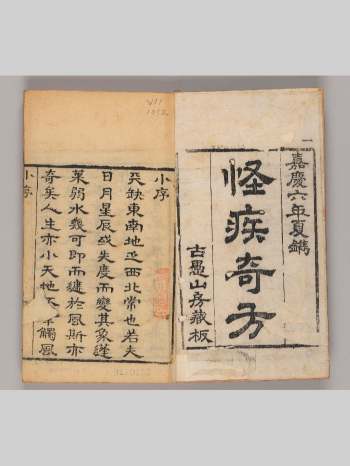 嘉慶六年夏鐫
怪疾奇方
古愚山房藏板
小序
天缺東南地㢠西北常也若夫
日月星辰或失度而變其象蓬
萊弱水幾可即而縺於風斯亦
奇矣人生亦小天地不
觸風
小序